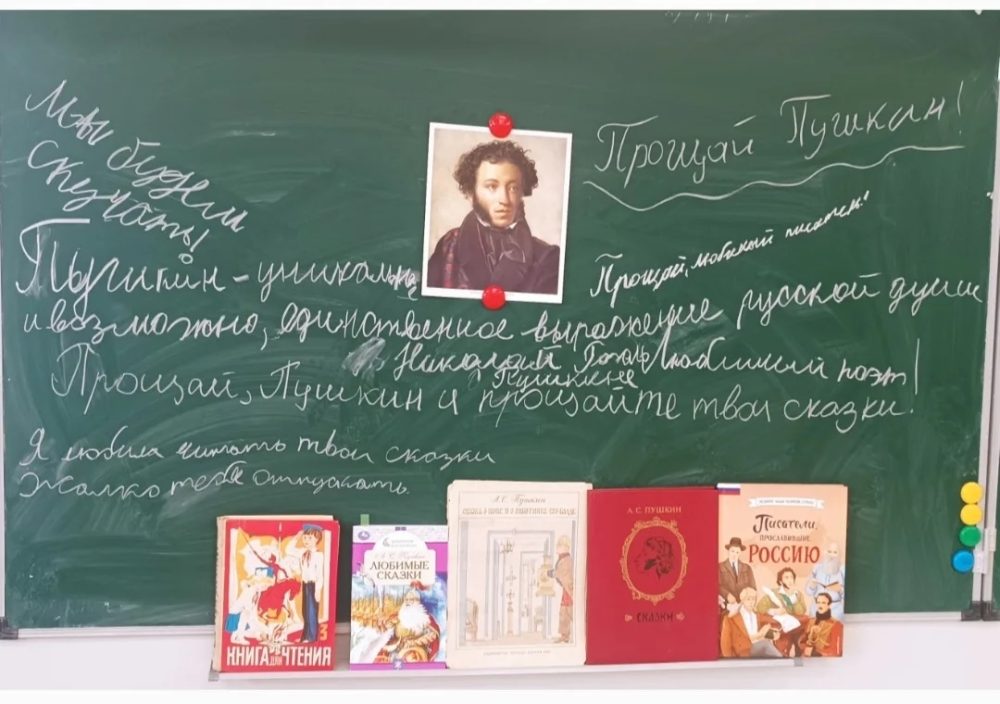 Мы будем
скучать!
Прощай Пушкин!
Прощай, любимый писатель!
Пушкин - уникальное
и возможно, единственное выражение русской души
Николай Гоголь
Любимый поэт!
Пушкине
Прощай, Пушкин и прощайте твои сказки!
Я любила читать твои сказки
Жалко тебя отпускать.
3
КНИГА ДЛЯ ЧТЕНИЯ
А. С. Пушкин
ЛЮБИМЫЕ
СКАЗКИ
А.С. Пушкин
А. С. ПУШКИН
СКАЗКИ
Писатели,
ПРОСЛАВИВШИЕ
РОССИЮ